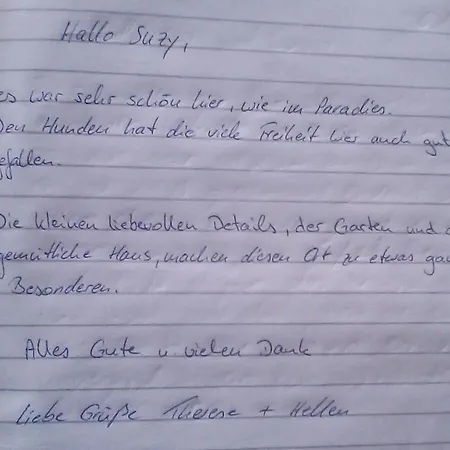 Hallo Suzy,
es war sehr schön hier, wie im Paradies.
Den Hunden hat die viele Freiheit hier auch gut
gefallen.
Die kleinen liebevollen Details, der Garten und d
gemütliche Haus, machen diesen Ort zu etwas gan
Besonderen.
Alles Gute u. vielen Dank
Liebe Grüße Therese + Hellen